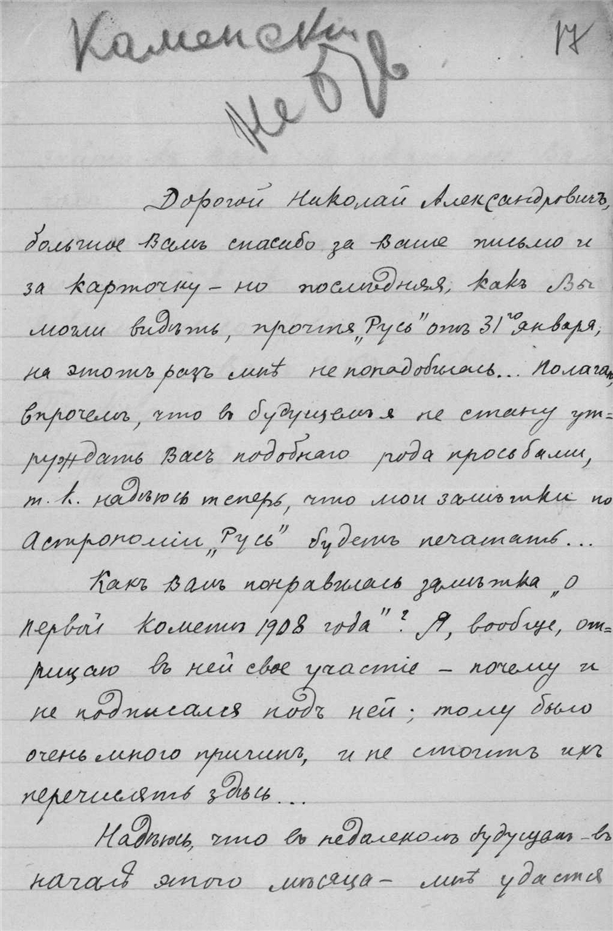 Каменский
17
не б
Дорогой Николай Александровичъ,
большое Вамъ спасибо за Ваше письмо и
за карточку – но послѣдняя, какъ Вы
могли видѣть, прочтя „Русь" отъ 31го января,
на этотъ разъ мнѣ не понадобилась... Полагаю,
впрочемъ, что въ будущемъ я не стану ут=
руждать Васъ подобнаго рода просьбами,
т. к. надѣюсь теперь, что мои замѣтки по
Астрономіи „Русь" будетъ печатать...
Какъ Вамъ понравилась замѣтка „о
первой кометѣ 1908 года"? Я, вообще, от=
рицаю въ ней свое участіе – почему и
не подписался подъ ней; тому было
очень много причинъ, и не стоитъ ихъ
перечислять здѣсь...
Надѣюсь, что въ недалекомъ будущемъ – въ
началѣ этого мѣсяца – мнѣ удастся